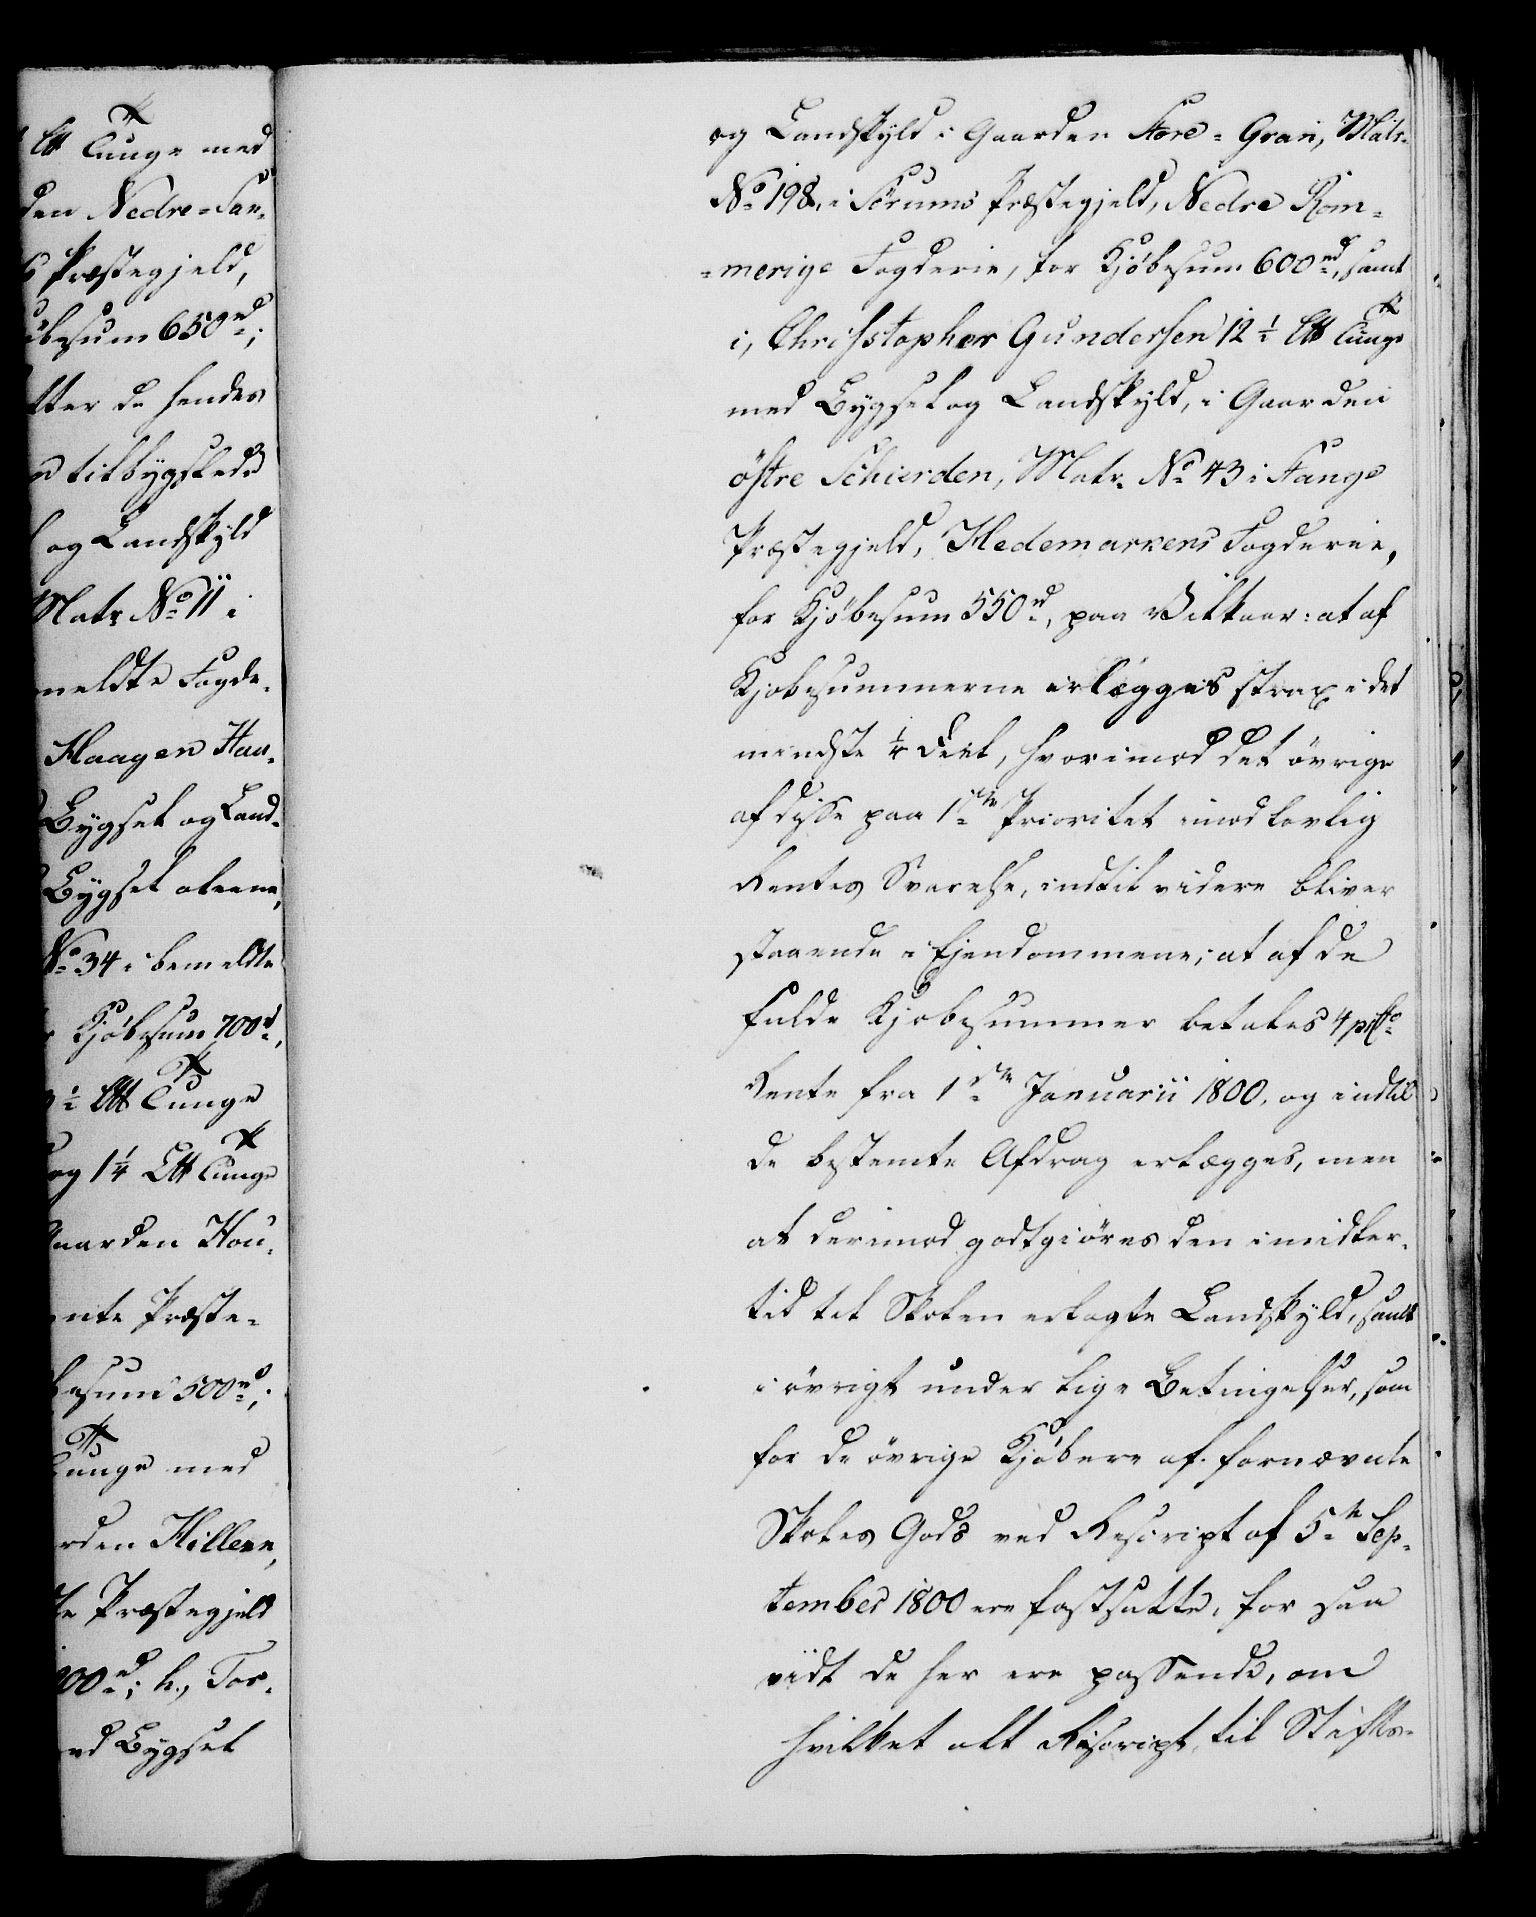 Lb Tunge med
den Nedre=San-
s Præstegjeld,
øbesum 650 rd;
tter de hendes
n tilbygslede
og Landskyld
Matr. No 11 i
meldte Fogde-
Haagen Han-
Bygsel og Land-
Bygsel alene,
No 34 i bemeldte
Kjøbesum 700 rd,
½ Lb Tunge
og 1¼ Lb Tunge
aarden Hou-
nte Præste-
besum 500 rd;
Tunge med
rden Hillern,
te Præstegjeld
00 rd; h, Tor-
ed Bygsel
og Landskyld i Gaarden Store=Gran, Matr.
No 198, i Sørums Præstegjeld, Nedre Rom-
=merige Fogderie, for Kjøbesum 600 rd, samt
i, Christopher Gundersen 12½ Lb Tunge
med Bygsel og Landskyld, i Gaarden
østre Schierden, Matr. No 43 i Stange
Præstegjeld, Hedemarkens Fogderie,
for Kjøbesum 550 rd, paa Vilkaar: at af
Kjøbesummerne erlægges strax i det
mindste ¼ Deel, hvorimod det øvrige
af disse paa 1ste Prioritet imod lovlig
Rentes Svarelse, indtil videre bliver
staaende i Ejendommene; at af de
fulde Kjøbesummer betales 4 prCto
Rente fra 1ste Januarii 1800, og indtil
de bestemte Afdrag erlægges, men
at derimod godtgiøres den imidler-
tid til Skolen erlagte Landskyld, samt
i øvrigt under lige Betingelser, som
for de øvrige Kjøbere af fornævnte
Skoles Gods ved Rescript af 5te Sep-
tember 1800 ere fastsatte, for saa
vidt de her ere passende, om
hvilket alt Rescript til Stifts-